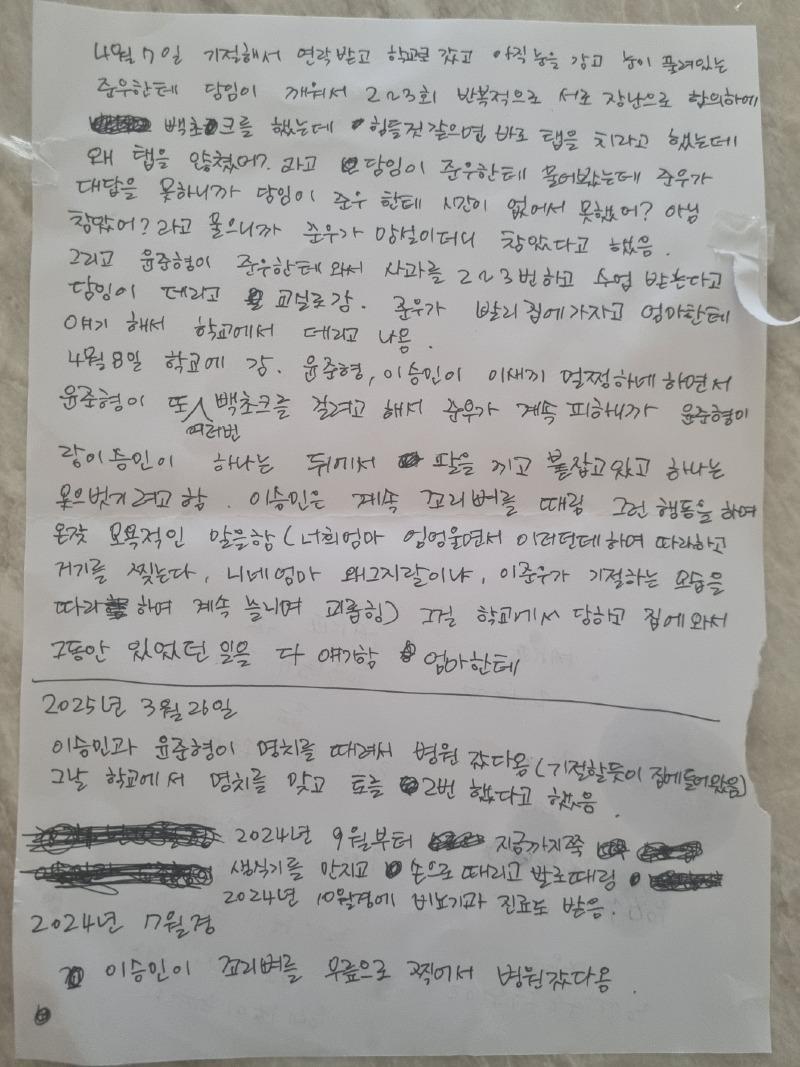 4월 7일 기절해서 연락받고 학교로 갔고 아직 눈을 감고 눈이 풀려있는
준우한테 담임이 깨워서 2~3회 반복적으로 서로 장난으로 합의하에
백초크를 했는데 힘들것 같으면 바로 탭을 치라고 했는데
왜 탭을 않쳤어? 라고 담임이 준우한테 물어봤는데 준우가
대답을 못하니까 담임이 준우 한테 시간이 없어서 못했어? 아님
참았어? 라고 물으니까 준우가 망설이더니 참았다고 했음.
그리고 윤준형이 준우한테 와서 사과를 2~3번하고 수업 받는다고
담임이 데리고 교실로 감. 준우가 빨리 집에 가자고 엄마한테
얘기 해서 학교에서 데리고 나옴.
4월 8일 학교에 감. 윤준형, 이승민이 이새끼 멀쩡하네 하면서
윤준형이 또 여러번 백초크를 걸려고 해서 준우가 계속 피하니까 윤준형이
랑 이승민이 하나는 뒤에서 팔을 끼고 붙잡고 있고 하나는
옷으벗기려고 함. 이승민은 계속 꼬리뼈를 때림 그런 행동을 하며
온갖 모욕적인 말을함 (너희엄마 엉엉울면서 이러던데하며 따라하고
거기를 찢는다, 니네엄마 왜그지랄이냐, 이준우가 기절하는 모습을
따라 하며 계속 놀리며 괴롭힘) 그걸 학교에서 당하고 집에 와서
그동안 있었던 일을 다 얘기함 엄마한테
2025년 3월 26일
이승민과 윤준형이 명치를 때려서 병원 갔다옴 (기절할듯이 집에 들어왔음)
그날 학교에서 명치를 맞고 토를 2번 했다고 했음.
2024년 9월부터 지금까지쭉
생식기를 만지고 손으로 때리고 발로때림
2024년 10월경에 비뇨기과 진료도 받음.
2024년 7월경
이승민이 꼬리뼈를 무릎으로 찍어서 병원갔다옴.